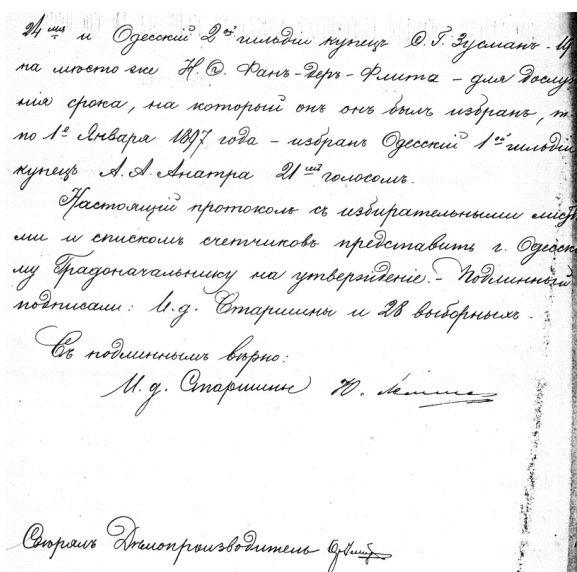 24мя и Одесскій 2ой гильдіи купецъ О. Г. Зусманъ - 19
на мѣсто же Н. Ѳ. Фанъ-деръ-Флита - для дослуж
нія срока, на который онъ онъ былъ избранъ, т.
по 1е Января 1897 года - избранъ Одесскій 1ой гильдіи
купецъ А. А. Анатра 21мъ голосомъ.
Настоящій протоколъ съ избирательными листа
ми и спискомъ счетчиковъ представить г. Одесско
му Градоначальнику на утвержденіе. - Подлинный
подписали: И. д. Старшины и 28 выборныхъ.
Съ подлиннымъ вѣрно:
И. д. Старшины Ю.
Свѣрялъ Дѣлопроизводитель